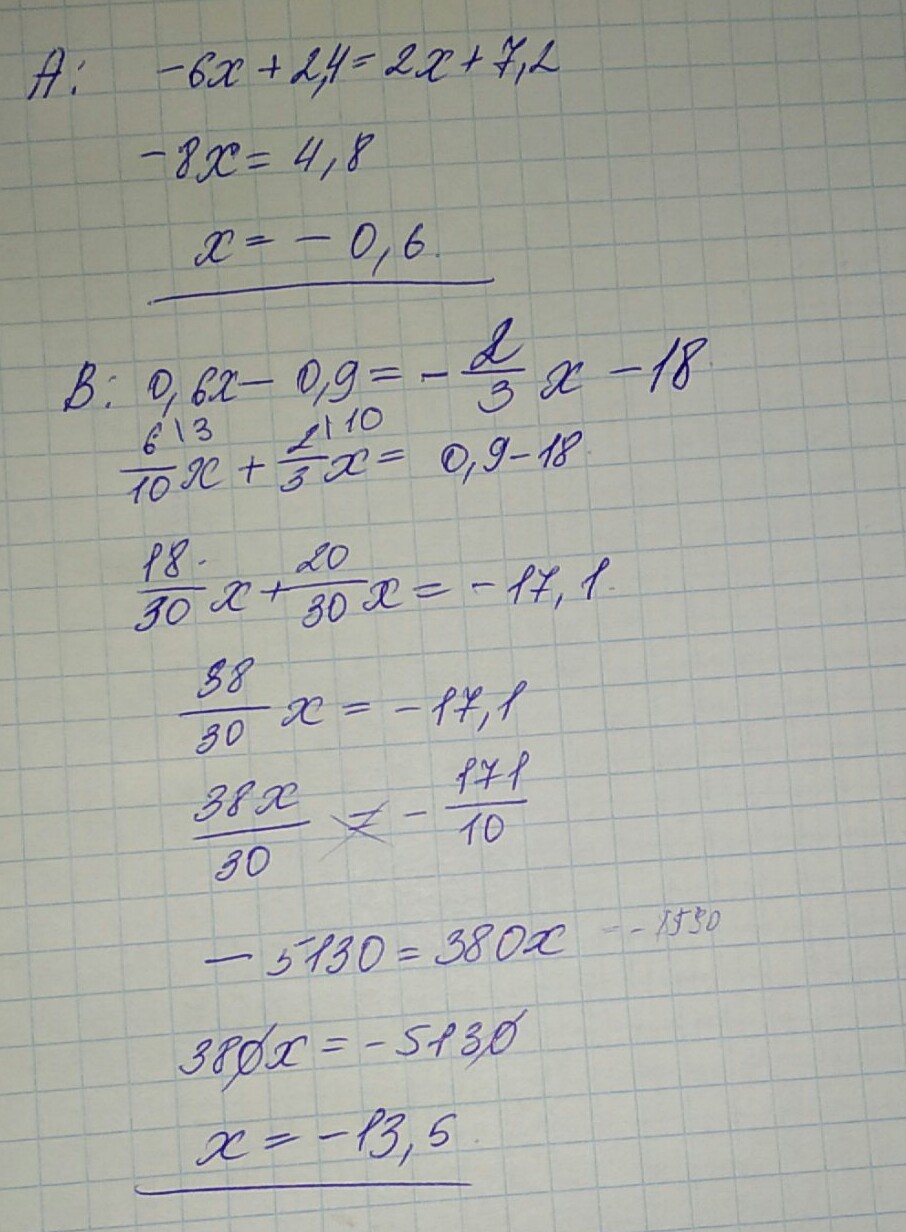 A: -6x + 2,4 = 2x + 7,2
-8x = 4,8
x = - 0,6.
B: 0,6x - 0,9 = - 2/3 x - 18
6\3/10 x + 2\10/3 x = 0,9 - 18
18/30 x + 20/30 x = - 17,1.
38/30 x = - 17,1
38x/30 = - 171/10
- 5130 = 380x
380x = - 5130
x = - 13,5